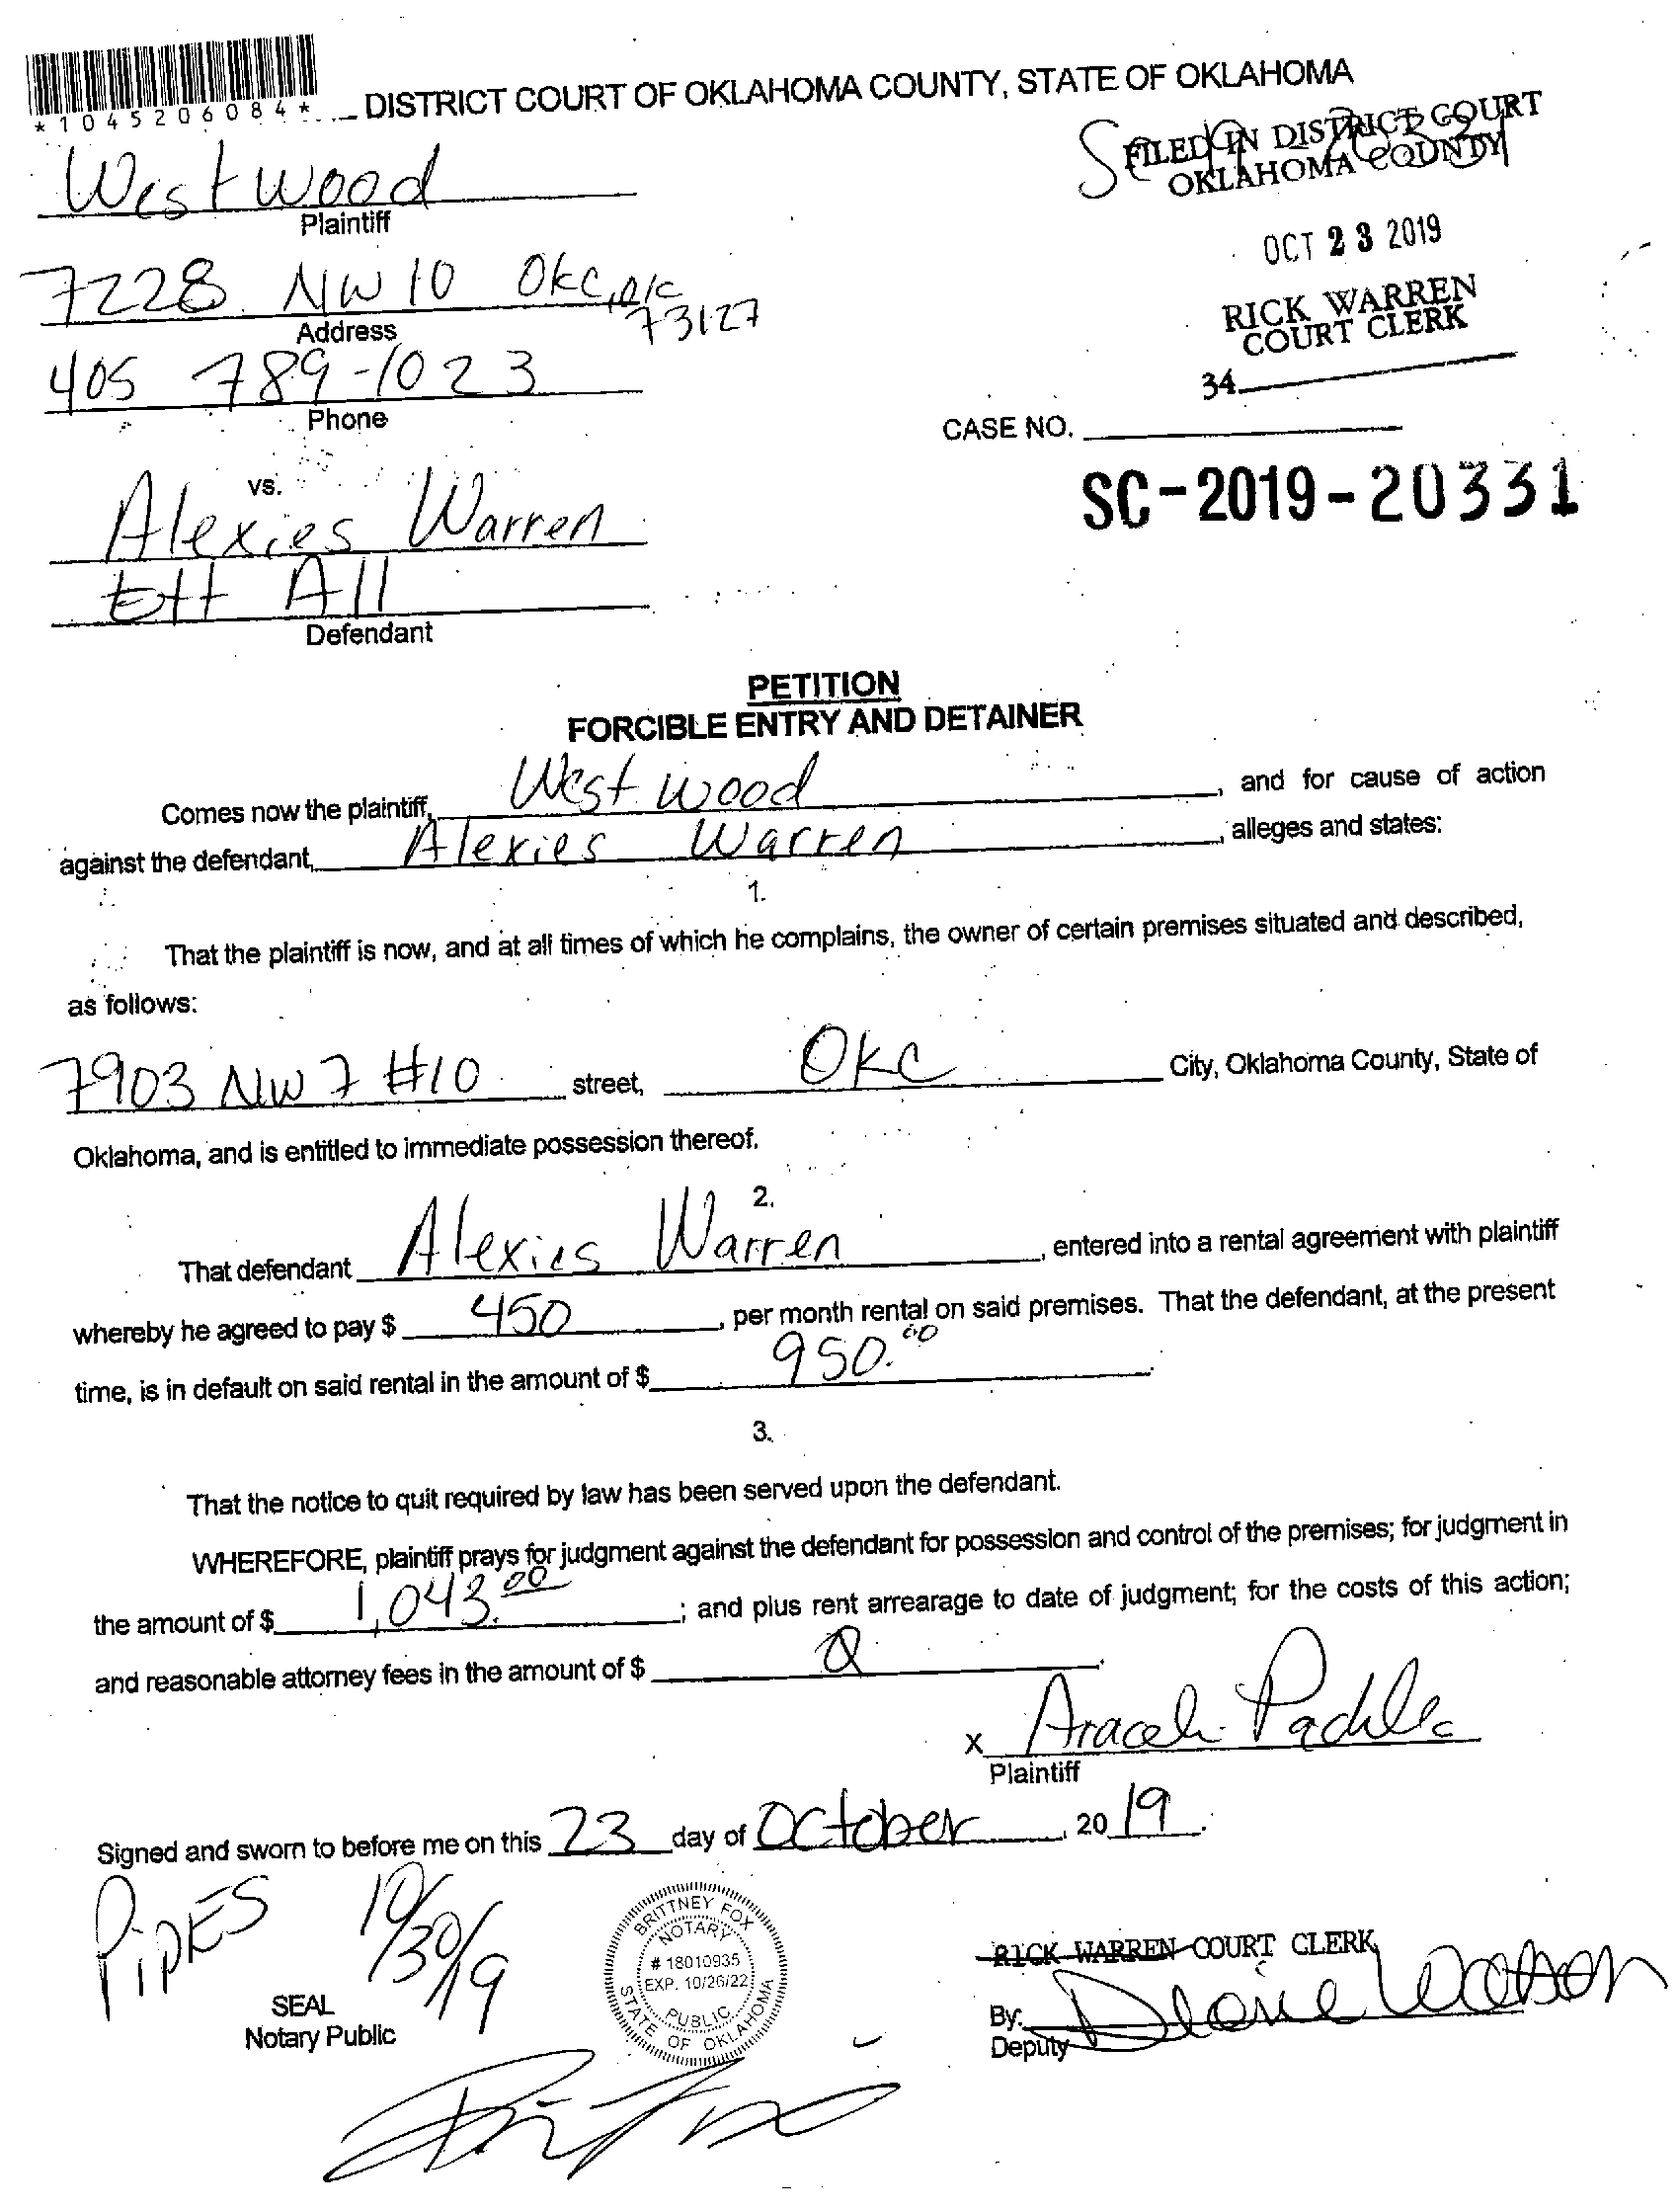 *1045206084*
DISTRICT COURT OF OKLAHOMA COUNTY, STATE OF OKLAHOMA
FILED IN DISTRICT COURT
OKLAHOMA COUNTY
Westwood
Plaintiff
OCT 23 2019
7228 NW 10 OKC, OK
73127
Address
RICK WARREN
COURT CLERK
405 789-1023
Phone
34
CASE NO.
SC-2019-20331
vs.
Alexies Warren
Ett All
Defendant
PETITION
FORCIBLE ENTRY AND DETAINER
Comes now the plaintiff, West wood, and for cause of action
against the defendant, Alexies Warren, alleges and states:
1.
That the plaintiff is now, and at all times of which he complains, the owner of certain premises situated and described,
as follows:
7903 NW 7 #10 street, OKC City, Oklahoma County, State of
Oklahoma, and is entitled to immediate possession thereof.
2.
That defendant Alexies Warren, entered into a rental agreement with plaintiff
whereby he agreed to pay $ 450, per month rental on said premises. That the defendant, at the present
time, is in default on said rental in the amount of $ 950.00.
3.
That the notice to quit required by law has been served upon the defendant.
WHEREFORE, plaintiff prays for judgment against the defendant for possession and control of the premises; for judgment in
the amount of $ 1,043.00; and plus rent arrearage to date of judgment; for the costs of this action;
and reasonable attorney fees in the amount of $
x Araceli Padilla
Plaintiff
Signed and sworn to before me on this 23 day of October, 2019.
PIPES 10/30/19
BRITTNEY FOX
NOTARY
# 18010935
EXP. 10/26/22
PUBLIC
STATE OF OKLAHOMA
RICK WARREN COURT CLERK
SEAL
Notary Public
By:
Deputy